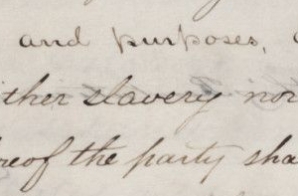 and purposes,
ther slavery nor
reof the party sha